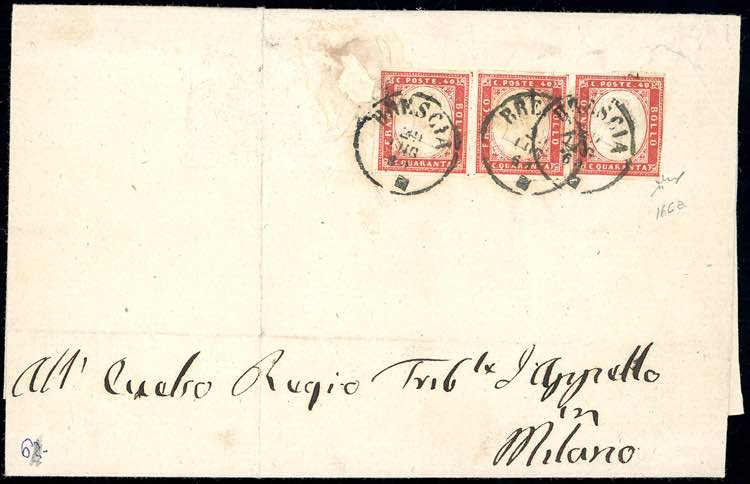 C. POSTE. 40 C. POSTE. 40 C. POSTE. 40
FRANCO BOLLO FRANCO BOLLO FRANCO BOLLO
C. QUARANTA C. QUARANTA C. QUARANTA
BRESCIA BRESCIA BRESCIA
LUG
16Ca
All' Eccelso Regio Trib.le d'Appello
in
Milano